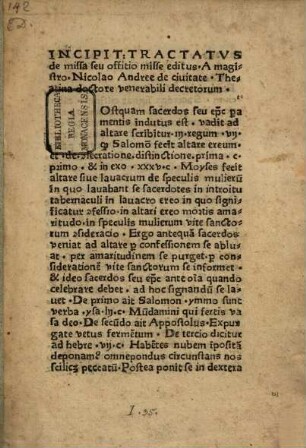 142
INCIPIT: TRACTATVS
de missa seu offitio misse editus· A magi
stro· Nicolao Andree de ciuitate· The
atina doctore venerabili decretorum·
BIBLIOTHECA
REGIA
MONACENSIS
Ostquam sacerdos seu epc̄ pa
mentis indutus est· vadit ad
altare scribitur·iij·regum·vij·
Salomō fecit altare ereum·
primo· & in exo·xxxv·c· Moyses fecit
altare siue lauacrum de speculis mulierū
In quo lauabant se sacerdotes in introitu
tabernaculi in lauacro ereo in quo signi
ficatur ɔfessio· in altari ereo mortis ama
ritudo· in speculis mulierum vite sanctо
rum ɔsideracio· Ergo antequā sacerdos
veniat ad altare ꝑ confessionem se ablu
at· per amaritudinem se purget· ꝑ consi
derationē vite sanctorum se informet·
& ideo sacerdos seu epc̄ ante oīa quando
celebrare debet· ad hoc signandū se la
uet· De primo ait Salomon· ymmo sunt
verba· ysa·lij·c· Mūdamini qui fertis va
sa deo· De secūdo ait Appostolus· Expur
gate vetus fermētum· De tercio dicitur
ad hebre·vij·c· Habētes nubem īpositā
deponamꝰ omnepondus circunstans nos
scilicꝫ peccatū· Postea ponit se in dextera
I. 35.